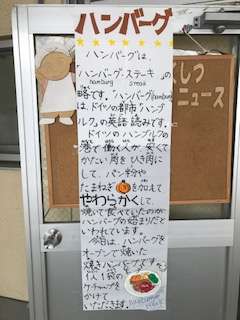 ハンバーグ
ハンバーグは、
「ハンバーグ・ステーキ」の
hamburg steak
略です。「ハンバーグ(hamburg)
は、ドイツの都市「ハンブ
ルク」の英語読みです。
ドイツのハンブルクの
港で働く人が、安くて
かたい肉をひき肉に
して、パン粉や
たまねぎを加えて
やわらかくして、
焼いて食べていたのが
ハンバーグの始まりだと
いわれています。
今日は、ハンバーグを
オーブンで焼いた、
焼きハンバーグです。
1人1袋の
ケチャップを
かけて
いただきます。
ニュース